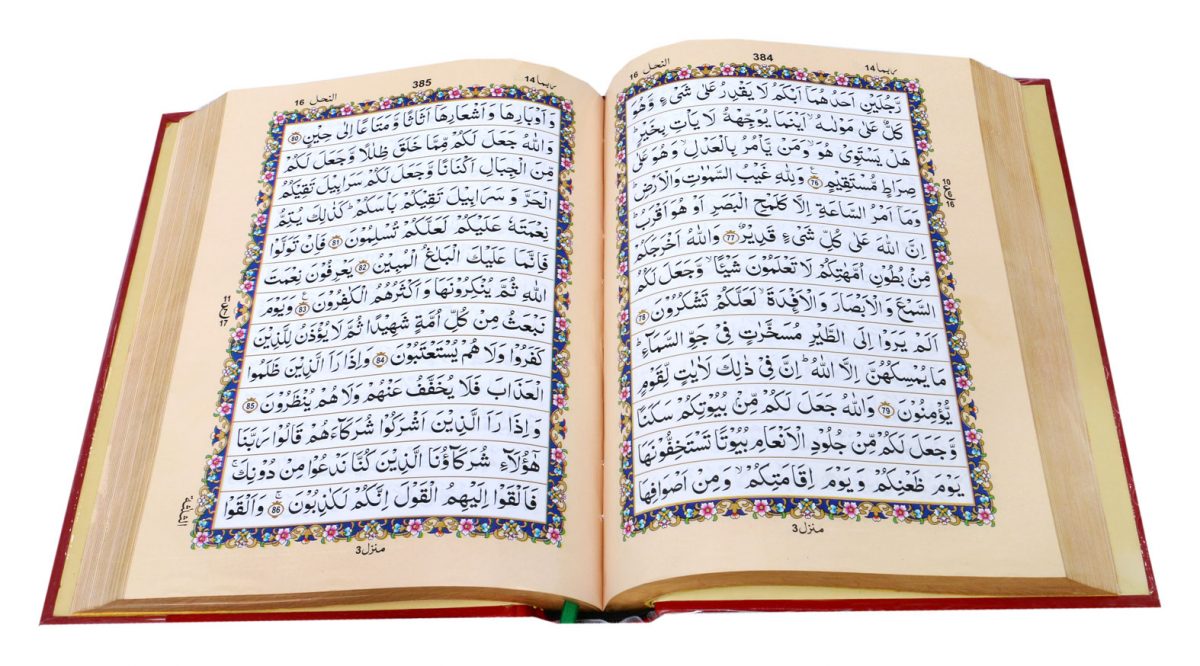 النحل 16
384
ربما 14
رَّجُلَيْنِ اَحَدُهُمَاۤ اَبْكَمُ لَا يَقْدِرُ عَلٰى شَیْءٍ وَّهُوَ
كَلٌّ عَلٰى مَوْلٰىهُ ۙ اَيْنَمَا يُوَجِّهْهُّ لَا يَاْتِ بِخَيْرٍ ؕ
هَلْ يَسْتَوِیْ هُوَ ۙ وَمَنْ يَّاْمُرُ بِالْعَدْلِ ۙ وَهُوَ عَلٰى
صِرَاطٍ مُّسْتَقِيْمٍ 76 وَلِلّٰهِ غَيْبُ السَّمٰوٰتِ وَالْاَرْضِ ؕ
وَمَاۤ اَمْرُ السَّاعَةِ اِلَّا كَلَمْحِ الْبَصَرِ اَوْ هُوَ اَقْرَبُ ؕ
اِنَّ اللّٰهَ عَلٰى كُلِّ شَیْءٍ قَدِيْرٌ 77 وَاللّٰهُ اَخْرَجَكُمْ
مِّنْۢ بُطُوْنِ اُمَّهٰتِكُمْ لَا تَعْلَمُوْنَ شَيْـًٔا ۙ وَّجَعَلَ لَكُمُ
السَّمْعَ وَالْاَبْصَارَ وَالْاَفْـِٕدَةَ ۙ لَعَلَّكُمْ تَشْكُرُوْنَ 78
اَلَمْ يَرَوْا اِلَى الطَّيْرِ مُسَخَّرٰتٍ فِیْ جَوِّ السَّمَآءِ ؕ
مَا يُمْسِكُهُنَّ اِلَّا اللّٰهُ ؕ اِنَّ فِیْ ذٰلِكَ لَاٰيٰتٍ لِّقَوْمٍ
يُّؤْمِنُوْنَ 79 وَاللّٰهُ جَعَلَ لَكُمْ مِّنْۢ بُيُوْتِكُمْ سَكَنًا
وَّجَعَلَ لَكُمْ مِّنْ جُلُوْدِ الْاَنْعَامِ بُيُوْتًا تَسْتَخِفُّوْنَهَا
يَوْمَ ظَعْنِكُمْ وَيَوْمَ اِقَامَتِكُمْ ۙ وَمِنْ اَصْوَافِهَا
10
ع
16
منزل 3
النحل 16
385
ربما 14
وَاَوْبَارِهَا وَاَشْعَارِهَاۤ اَثَاثًا وَّمَتَاعًا اِلٰى حِيْنٍ 80
وَاللّٰهُ جَعَلَ لَكُمْ مِّمَّا خَلَقَ ظِلٰلًا وَّجَعَلَ لَكُمْ
مِّنَ الْجِبَالِ اَكْنَانًا وَّجَعَلَ لَكُمْ سَرَابِيْلَ تَقِيْكُمُ
الْحَرَّ وَسَرَابِيْلَ تَقِيْكُمْ بَاْسَكُمْ ؕ كَذٰلِكَ يُتِمُّ
نِعْمَتَهٗ عَلَيْكُمْ لَعَلَّكُمْ تُسْلِمُوْنَ 81 فَاِنْ تَوَلَّوْا
فَاِنَّمَا عَلَيْكَ الْبَلٰغُ الْمُبِيْنُ 82 يَعْرِفُوْنَ نِعْمَتَ
اللّٰهِ ثُمَّ يُنْكِرُوْنَهَا وَاَكْثَرُهُمُ الْكٰفِرُوْنَ 83 وَيَوْمَ
نَبْعَثُ مِنْ كُلِّ اُمَّةٍ شَهِيْدًا ثُمَّ لَا يُؤْذَنُ لِلَّذِيْنَ
كَفَرُوْا وَلَا هُمْ يُسْتَعْتَبُوْنَ 84 وَاِذَا رَاَ الَّذِيْنَ ظَلَمُوا
الْعَذَابَ فَلَا يُخَفَّفُ عَنْهُمْ وَلَا هُمْ يُنْظَرُوْنَ 85
وَاِذَا رَاَ الَّذِيْنَ اَشْرَكُوْا شُرَكَآءَهُمْ قَالُوْا رَبَّنَا
هٰۤؤُلَآءِ شُرَكَآؤُنَا الَّذِيْنَ كُنَّا نَدْعُوْا مِنْ دُوْنِكَ ۚ
فَاَلْقَوْا اِلَيْهِمُ الْقَوْلَ اِنَّكُمْ لَكٰذِبُوْنَ 86 وَاَلْقَوْا
11
ع
17
الثلثة
منزل 3